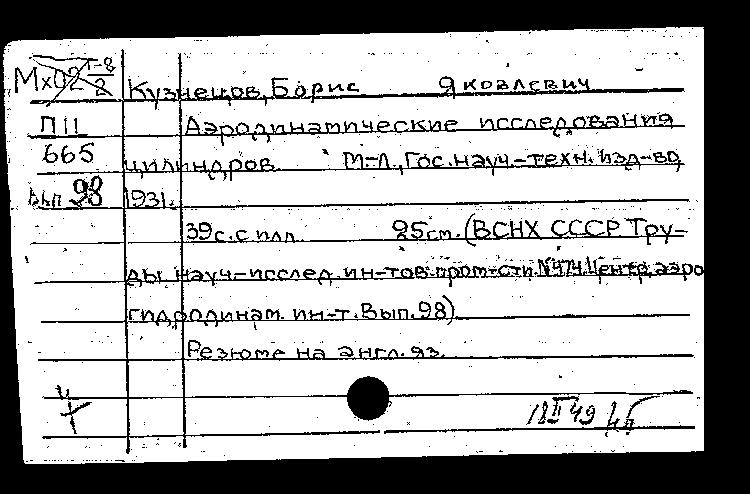 Мх02 Т-8/2
Кузнецов, Борис Яковлевич
П11 Аэродинамические исследования
665 цилиндров. М-Л., Гос. науч.-техн. изд-во,
Вып 98 1931.
39 с. с илл. 25 см. (ВСНХ СССР. Тру-
ды науч-исслед. ин-тов пром-сти №474. Центр. аэро
гидродинам. ин-т. Вып. 98)
Резюме на англ. яз.
18 II 49